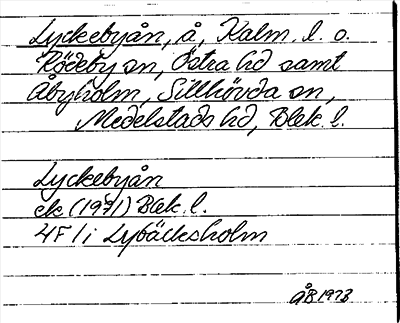 Lyckebyån, å, Kalm. l. o.
Rödeby sn, Östra hd samt
Åbyholm, Sillhövda sn,
Medelstads hd, Blek. l.
Lyckebyån
ek (1971) Blek. l.
4F 1i Lybäcksholm
ÅB 1973